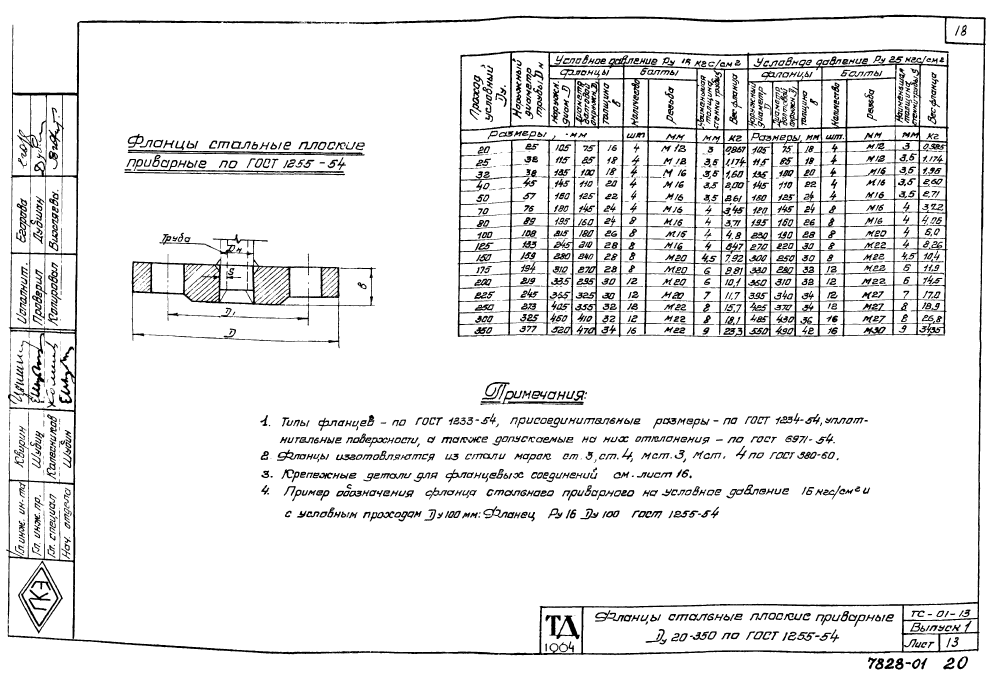 18
Фланцы стальные плоские
приварные по ГОСТ 1255-54
Труба
Dн
D₁
D
в
Проход условный Dу.
Наружный диаметр трубы Dн
Условное давление Ру 16 кгс/см²
Условное давление Ру 25 кгс/см²
фланцы Болты фланцы Болты
Наружн. диам. D
толщина в
Количество
резьба
Вес фланца
толщина в
количество
резьба
Вес фланца
Размеры, мм шт мм мм кг Размеры, мм шт. мм мм кг
20 25 105 75 16 4 М12 3 105 75 18 4 М12 3
25 32 115 85 18 4 М12 3,5 1,174 115 85 18 4 М12 3,5 1,174
32 38 135 100 18 4 М16 3,5 1,60 135 100 20 4 М16 3,5
40 45 145 110 20 4 М16 3,5 2,00 145 110 22 4 М16 3,5 2,60
50 57 160 125 22 4 М16 3,5 2,61 160 125 24 4 М16 3,5 2,71
70 76 180 145 24 4 М16 4 3,45 145 24 8 М16 4 3,22
80 89 195 160 24 8 М16 4 3,71 195 160 26 8 М16 4
100 108 215 180 26 8 М16 4 4,8 230 190 28 8 М20 4 6,0
125 133 245 210 28 8 М16 4 6,47 270 220 30 8 М22 4 8,26
150 159 280 240 28 8 М20 4,5 7,92 300 250 30 8 М22 4,5 10,4
175 194 310 270 28 8 М20 6 8,81 330 280 32 12 М22 6 11,9
200 219 335 295 30 12 М20 6 10,1 360 310 32 12 М22 6 14,5
225 245 365 325 30 12 М20 7 11,7 395 340 34 12 М27 7 17,0
250 273 405 355 32 12 М22 8 15,7 425 370 34 12 М27 8 18,9
300 325 460 410 32 12 М22 8 18,1 485 430 36 16 М27 8 26,8
350 377 520 470 34 16 М22 9 23,3 550 490 42 16 М30 9 34,35
Примечания:
1. Типы фланцев - по ГОСТ 1233-54, присоединительные размеры - по ГОСТ 1234-54, уплот-
нительные поверхности, а также допускаемые на них отклонения - по гост 6971-54.
2. Фланцы изготовляются из стали марок ст. 3, ст. 4, мст. 3, Мст. 4 по ГОСТ 380-60.
3. Крепежные детали для фланцевых соединений см. лист 16.
4. Пример обозначения фланца стального приварного на условное давление 16 кгс/см² и
с условным проходом Dу 100 мм: Фланец Ру 16 Dу 100 гост 1255-54
Гл. инж. ин-та Квирин
Гл. инж. пр. Шубин
Гл. специал Колесников
Нач. отдела Шубин
Исполнит. Егорова
Проверил
Копировал
ГКЭ
ТД
1964
Фланцы стальные плоские приварные
Dу 20-350 по ГОСТ 1255-54
ТС-01-13
Выпуск 1
Лист 13
7828-01 20